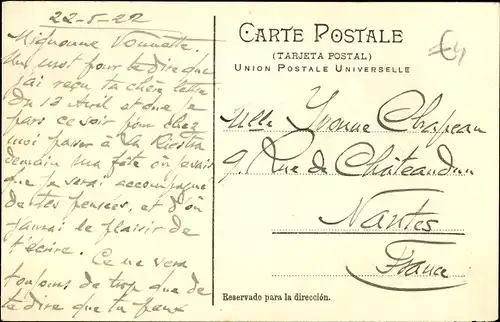 22-5-22
Mignonne Vonnette.
Un mot pour te dire que
j'ai reçu ta chère lettre
du 12 Avril et que je
pars ce soir pour chez
moi passer à La Riestra
demain ma fête où
que je serai accompagné
de tes pensées, et d'où
j'aurai le plaisir de
t'écrire. Ce ne sera
toujours de trop que de
te dire que tu peux
CARTE POSTALE
(TARJETA POSTAL)
UNION POSTALE UNIVERSELLE
€4
Mlle Yvonne Chapeau
9, Rue de Châteaudun
Nantes
France
Reservado para la dirección.